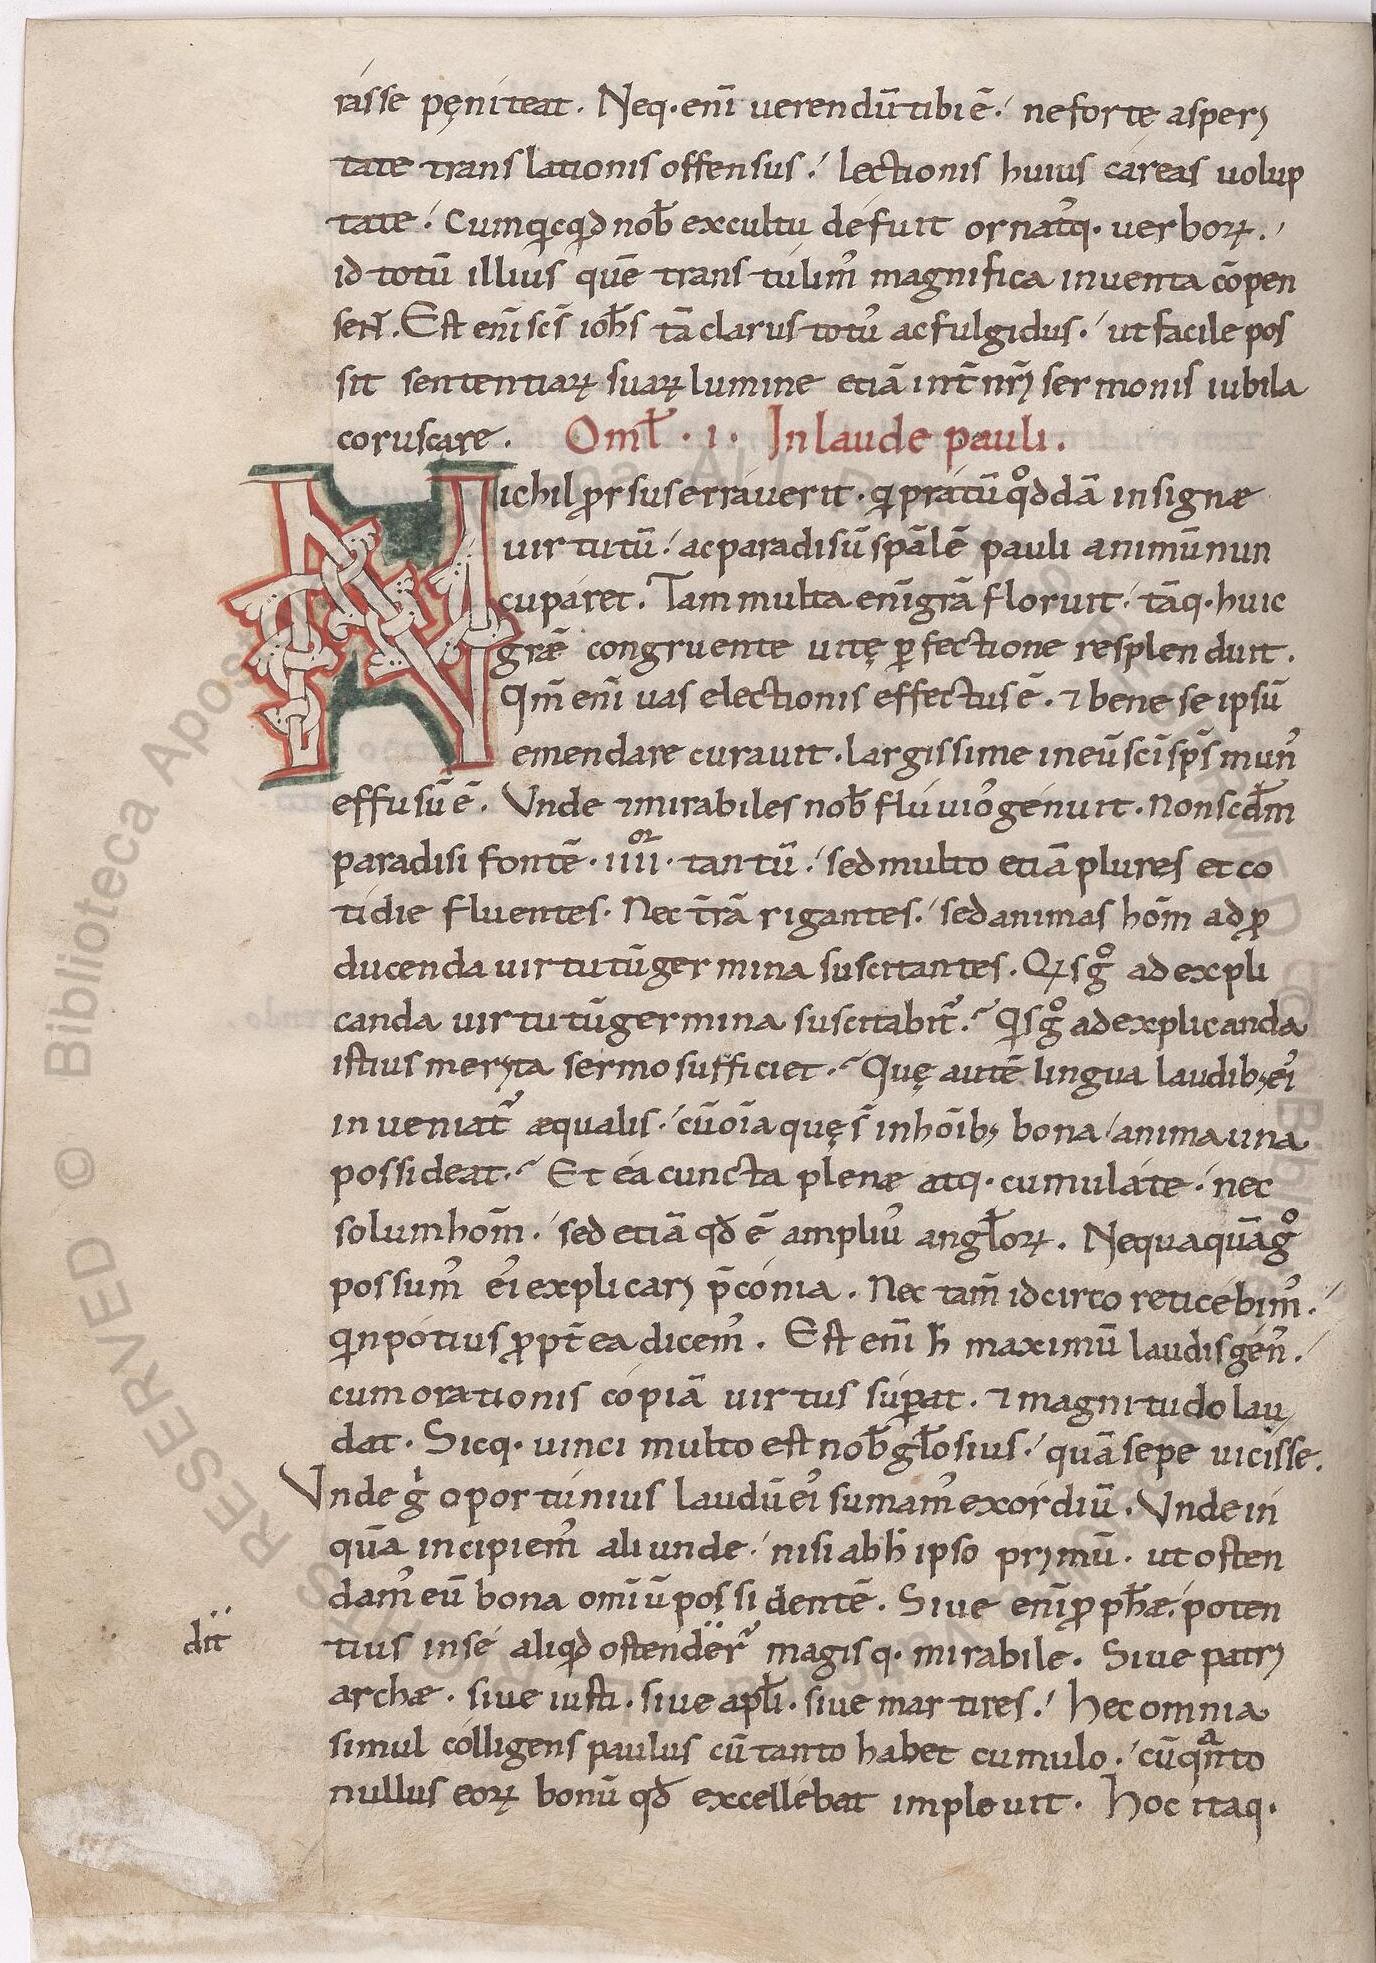 rasse pęniteat. Neq· enī uerendū tibi ē· ne forte asperi
tate translationis offensus· lectionis huius careas uolup
tate· Cum qicqid nob̄ excultu defuit ornatuq· uerboꝝ·
id totū illius quē transtulim᾽ magnifica inuenta cōpen
sent. Est enī scs̄ ioh̄s tā clarus totu᾽ ac fulgidus· ut facile pos
sit sententiaꝝ suaꝝ lumine etiā int̄ nr̄i sermonis iubila
coruscare. Oml̄ · i · In laude pauli.
Nichil ꝓrsus errauerit· qi pratū qᵒddā insignæ
uirtutū· ac paradisū spālē pauli animū nun
cuparet. Tam multa enī grā floruit· tāq· huic
grǣ congruente uitę ꝑfectione resplenduit.
Qm̄ enī uas electionis effectus ē· ⁊ bene se ipsū
emendare curauit· largissime in eū scī sps̄ mun᾽
effusū ē. Vnde ⁊ mirabiles nob̄ fluuio᾽ genuit· non scdm̄
paradisi fontē· iiiiᵒʳ· tantū· sed multo etiā plures et co
tidie fluentes· Nec tr̄ā rigantes· sed animas hom̄ ad ꝓ
ducenda uirtutū germina suscitantes. Qis gᵒ ad expli
canda uirtutū germina suscitabit᾽· Qis gᵒ ad explicanda
istius merita sermo sufficiet· Quę autē lingua laudib; ei᾽
inueniat᾽ æqualis· cū oīa quę s̄ in hoīb; bona anima una
possideat· Et ea cuncta plenæ atq· cumulate· nec
solum hom̄· sed etiā qd̄ ē ampliu᾽ angl̄oꝝ. Nequaquā gᵒ
possum᾽ ei᾽ explicari p̄conia. Nec tam̄ idcirco reticebim᾽·
qin potius ꝓpt̄ea dicem᾽. Est enī h̄ maximū laudis gen᾽·
cum orationis copiā uirtus suꝑat· ⁊ magnitudo lau
dat· Sicq· uinci multo est nob̄ gl̄osius· quā sepe uicisse.
Vnde gⁱ oportunius laudū ei᾽ sumam᾽ exordiū. Vnde in
quā incipiem᾽ aliunde· nisi ab h̄ ipso primū· ut osten
dam᾽ eū bona omīū possidentē. Siue enī ꝓph̄æ· poten
tius in se aliqid ostender᾽ magisq· mirabile. Siue patri
dit
archæ· siue iusti· siue apl̄i· siue martires· hec omnia
simul colligens paulus cū tanto habet cumulo· cū qᵃnto
nullus eoꝝ bonū qd̄ excellebat impleuit· hoc itaq·